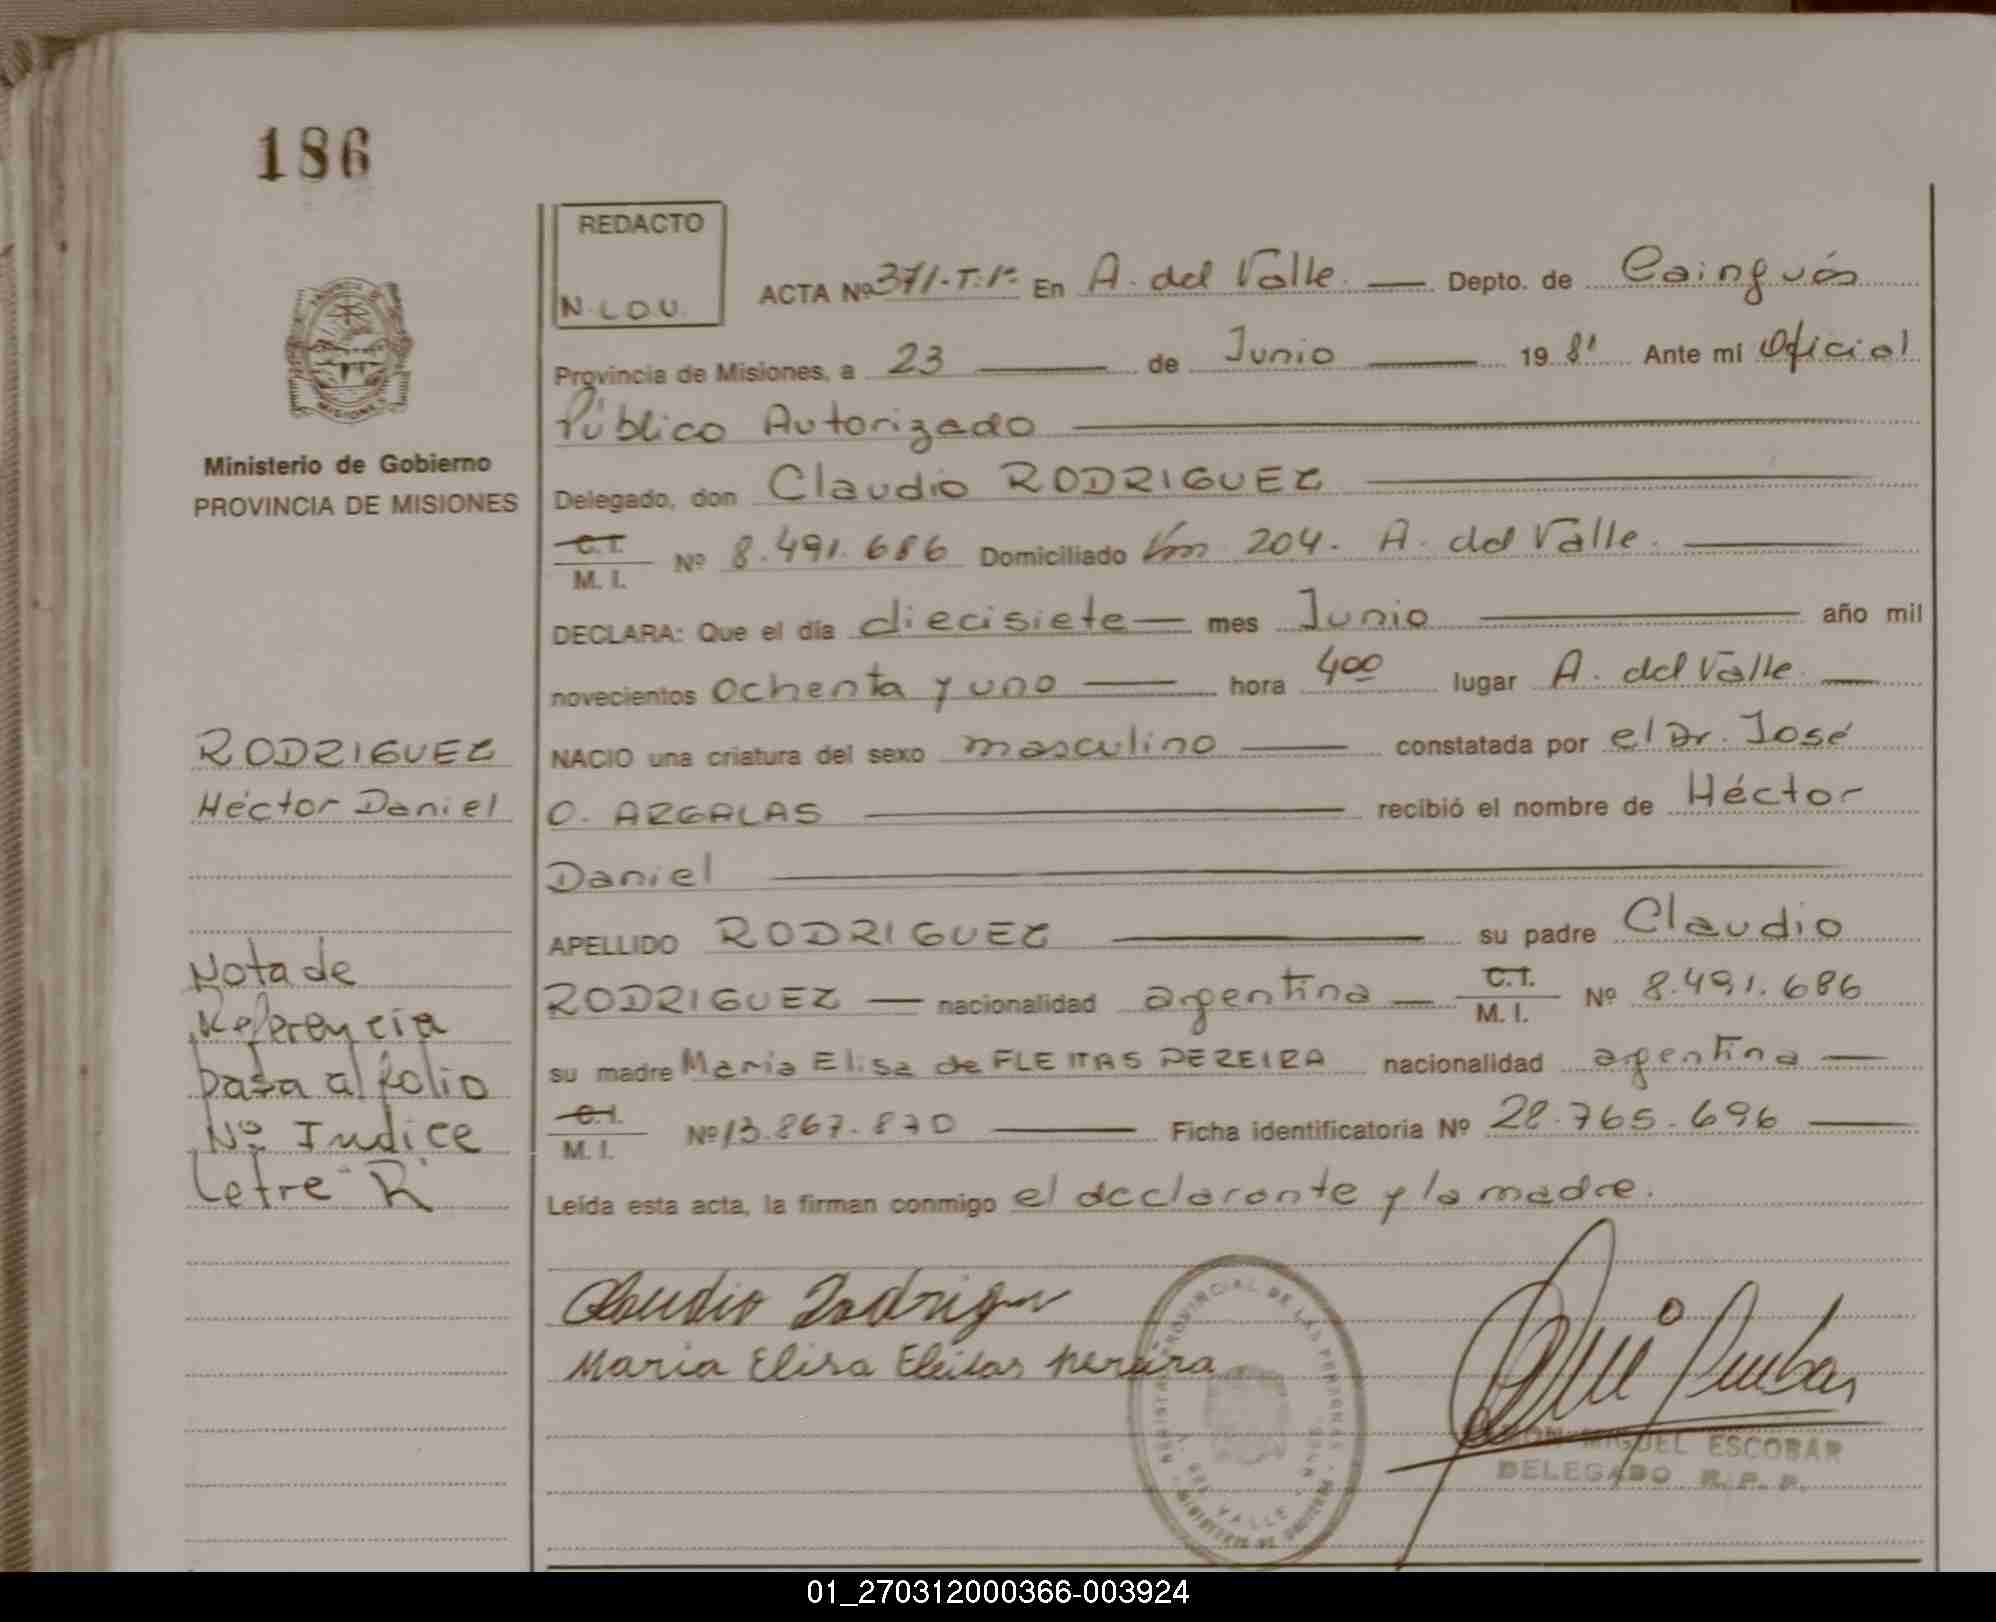 186
REDACTO
N.LOU.
ACTA Nº 371-T:1º En A. del Valle. Depto. de Cainguás
Provincia de Misiones, a 23 de Junio 1981 Ante mi Oficial
Público Autorizado
Ministerio de Gobierno
PROVINCIA DE MISIONES
Delegado, don Claudio RODRIGUEZ
C.I.
M. I. Nº 8.491.686 Domiciliado Km 204. A. del Valle.
DECLARA: Que el día diecisiete mes Junio año mil
novecientos ochenta y uno hora 4 00 lugar A. del Valle.
RODRIGUEZ
Héctor Daniel
NACIO una criatura del sexo masculino constatada por el Dr. José
O. ARGALAS recibió el nombre de Héctor
Daniel
APELLIDO RODRIGUEZ su padre Claudio
RODRIGUEZ nacionalidad argentina C.I. M. I. Nº 8.491.686
su madre Maria Elisa de FLEITAS PEREIRA nacionalidad argentina
C.I.
M. I. Nº 13.867.870 Ficha identificatoria Nº 28.765.696
Leída esta acta, la firman conmigo el declarante y la madre.
Nota de
Referencia
pasa al folio
Nº Indice
Letre "R"
Claudio Rodrigu
Maria Elisa Fleitas pereira
PROVINCIAL DE LAS PERSONAS
VALLE
MINISTERIO DE GOBIERNO
MIGUEL ESCOBAR
DELEGADO R. P. P.
MISIONES
01_270312000366-003924